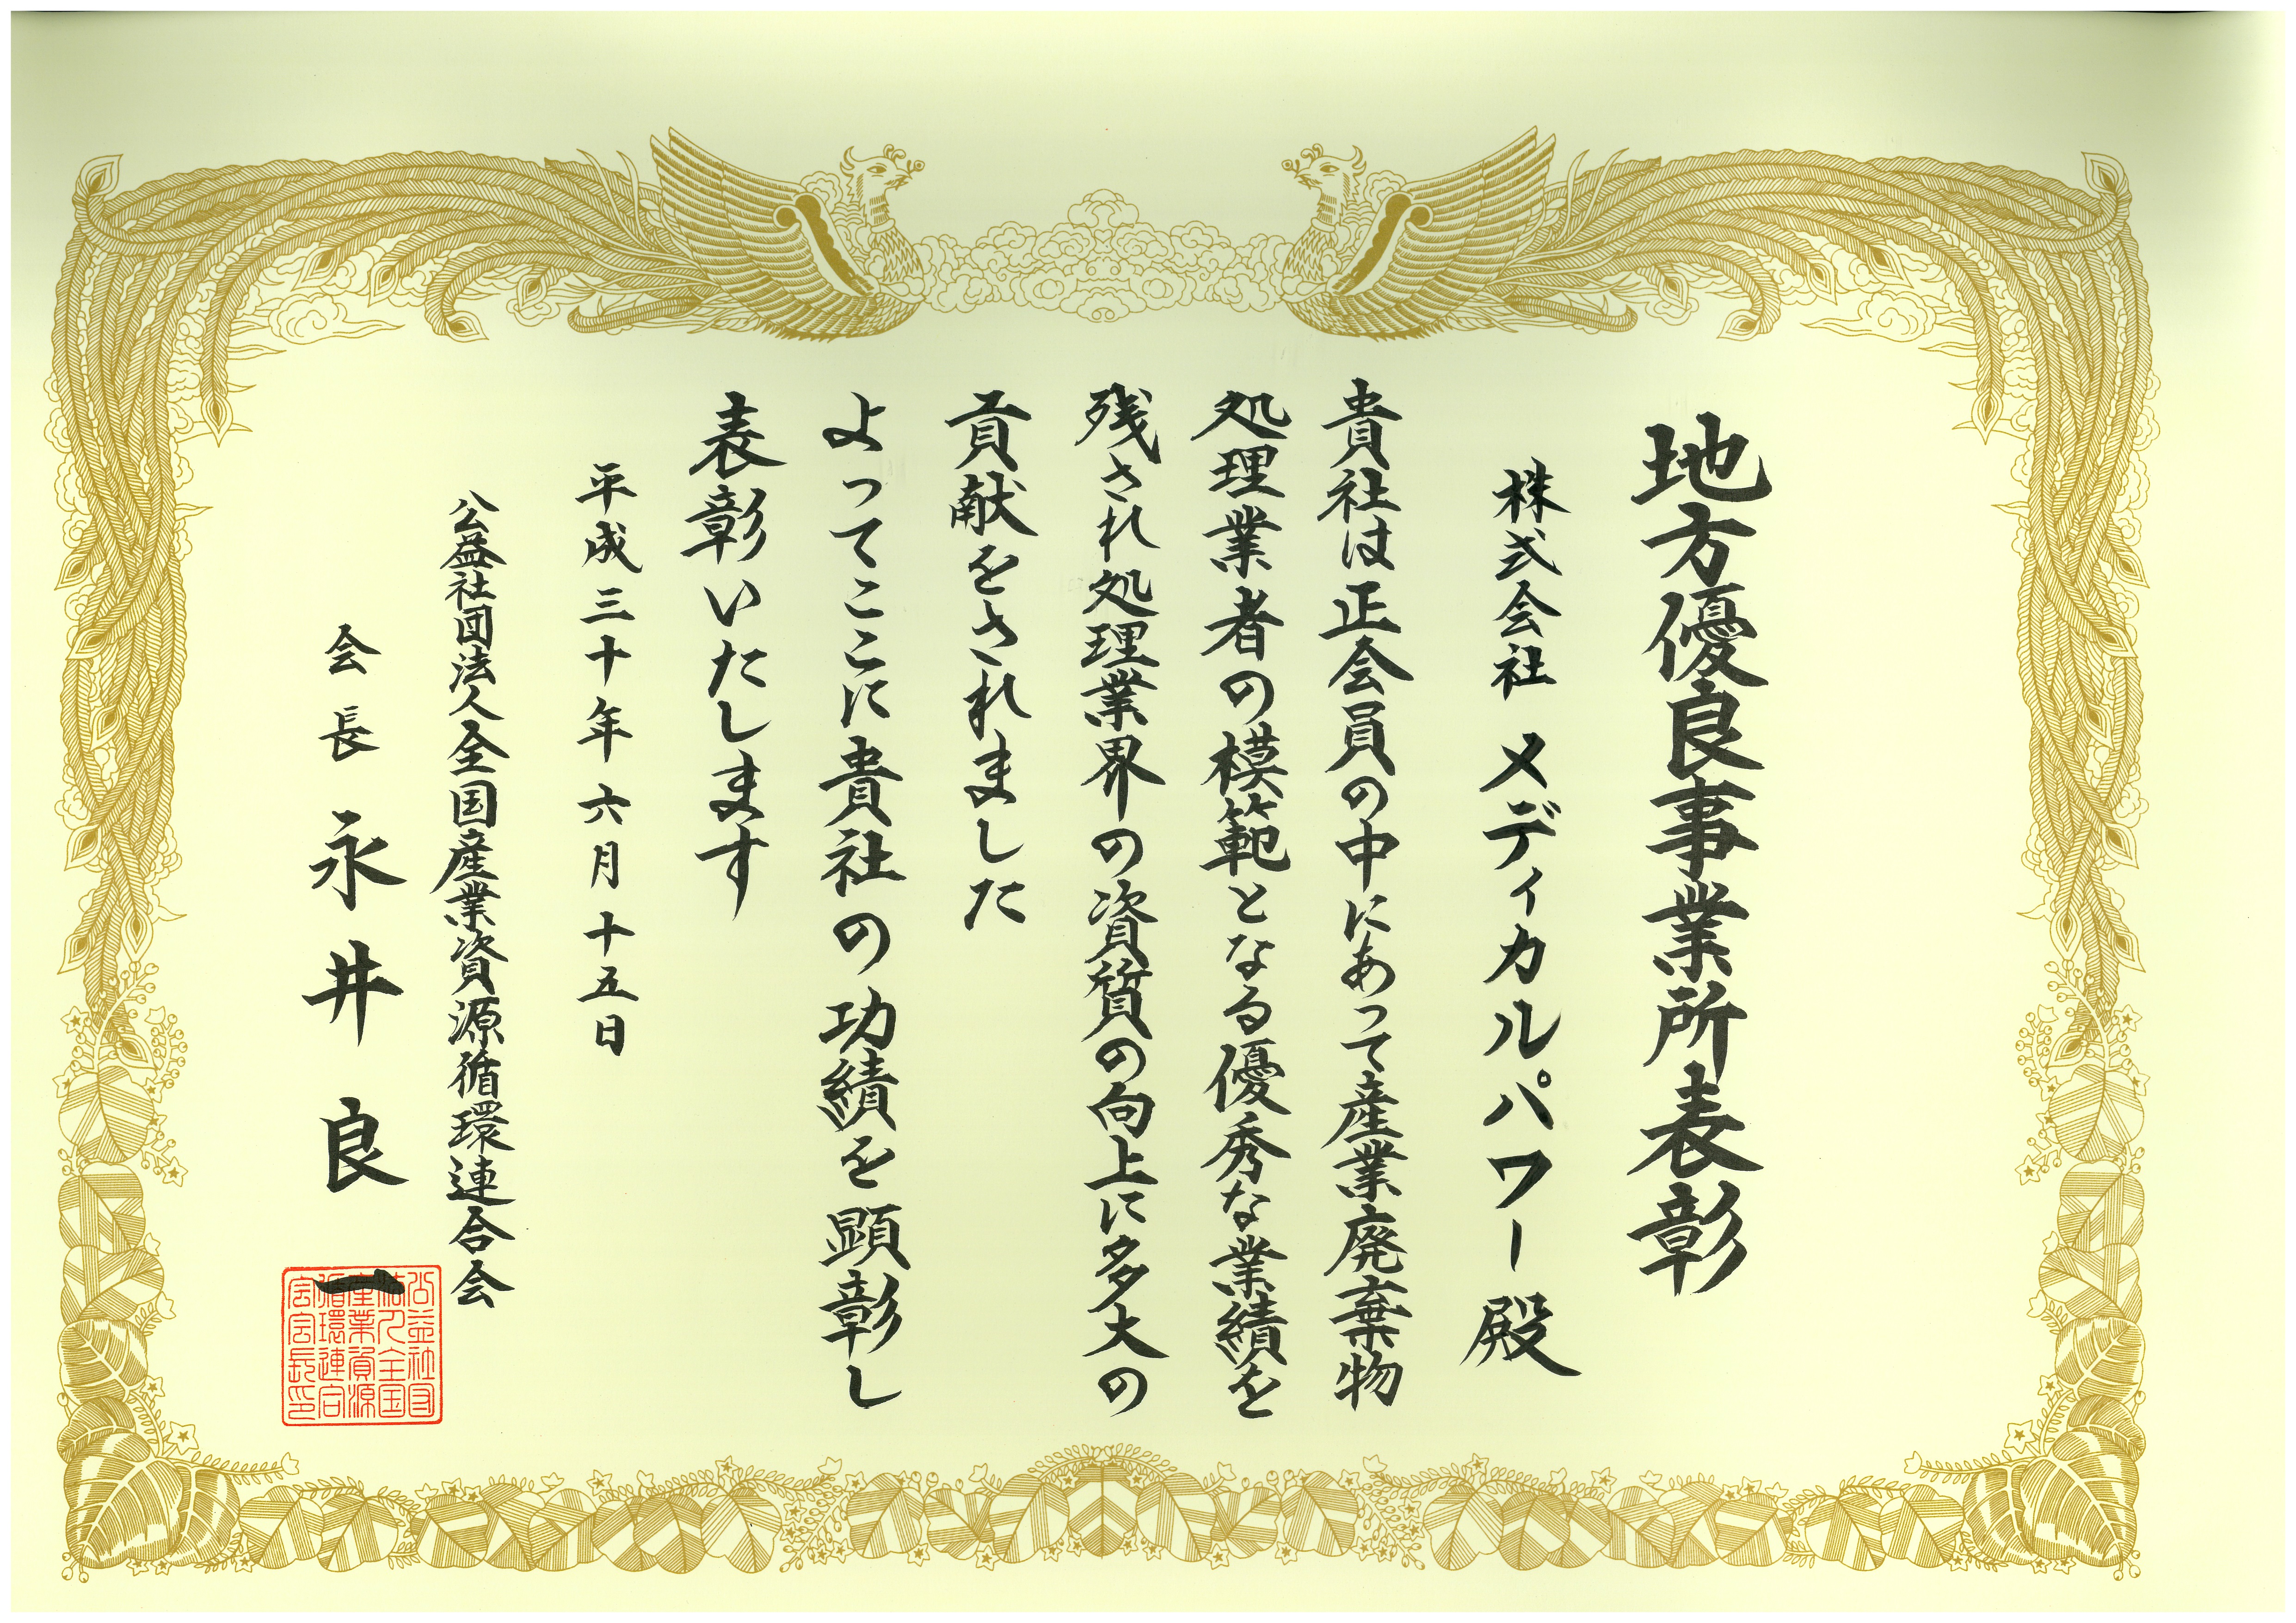 地方優良事業所表彰
株式会社 メディカルパワー 殿
貴社は正会員の中にあって産業廃棄物
処理業者の模範となる優秀な業績を
残され処理業界の資質の向上に多大の
貢献をされました
よってここに貴社の功績を顕彰し
表彰いたします
平成三十年六月十五日
公益社団法人全国産業資源循環連合会
会長 永井良一
公益社団
法人全国
産業資源
循環連合
会会長印